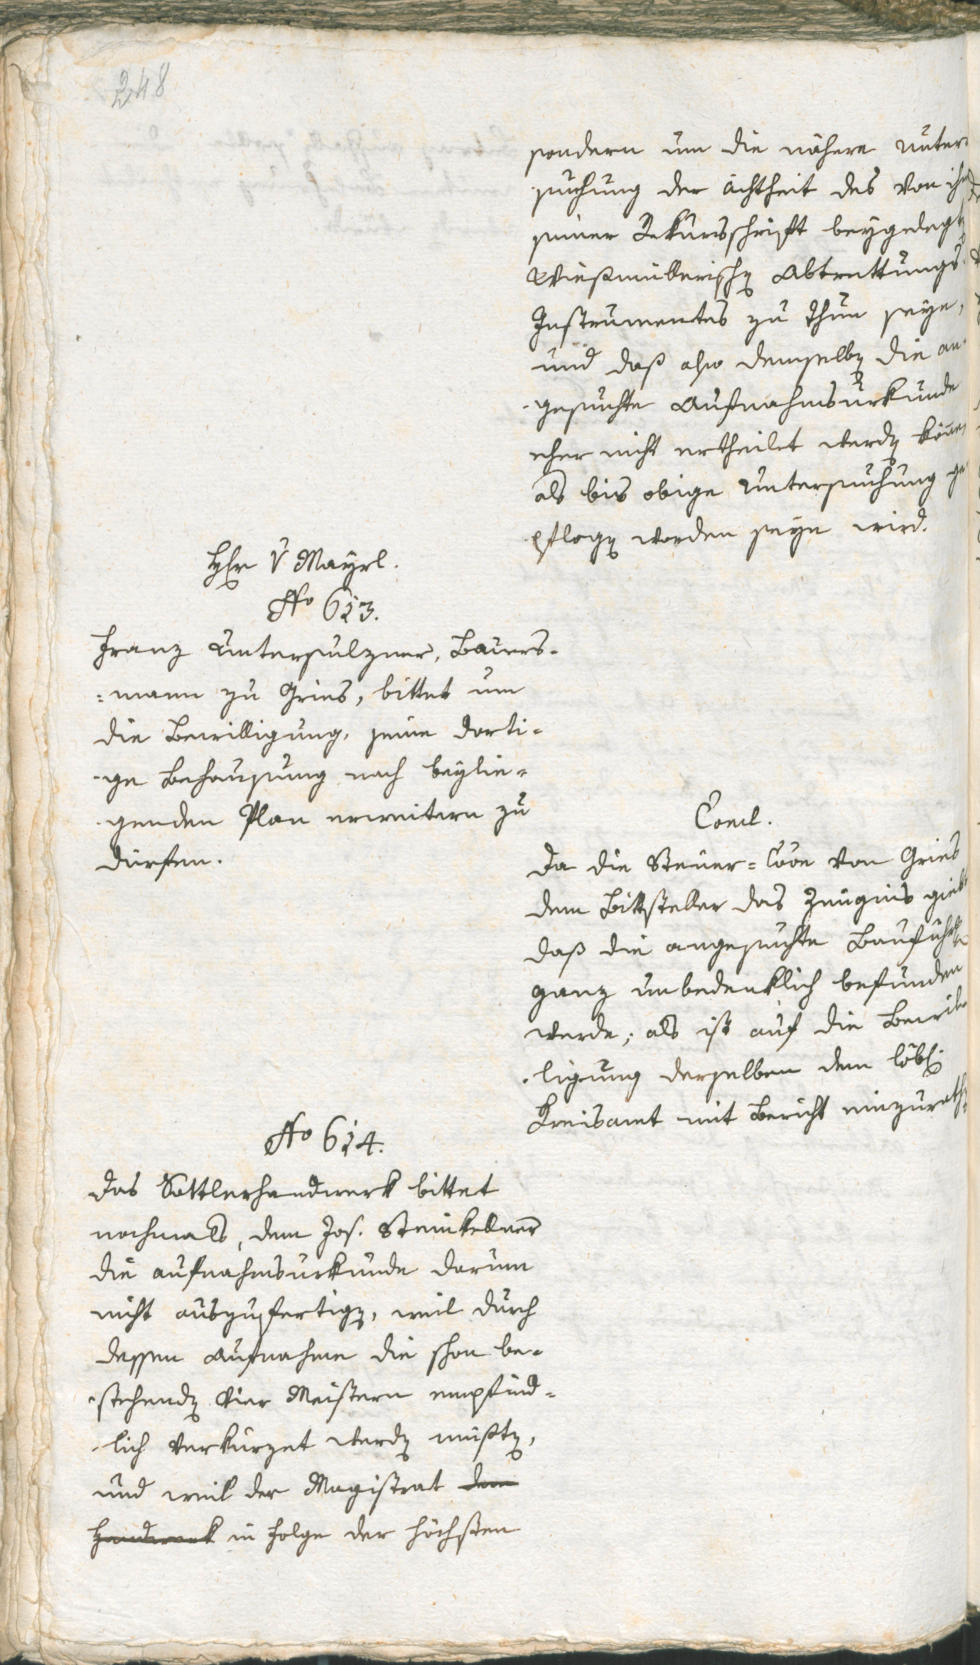 248
sondern um die nähere Unter
suchung der ächtheit des von ihm
seiner Rekursschrift beygelegt
Wießmüllerischen Abtrettungs
Instrumentes zu thun seye,
und daß also demselben die an
gesuchte Aufnahmsurkunde
eher nicht ertheilet werden könne,
als bis obige Untersuchung ge
pflogen worden seyn wird.
Hr v Mayrl.
No 613.
Franz Untersulzner, Bauers-
=mann zu Gries, bittet um
die Bewilligung, seine dorti-
-ge Behausung nach beylie-
-genden Plan erweitern zu
dürfen.
Concl.
Da die Steuer=Coôn von Gries
dem Bittsteller das Zeugnis giebt
daß die angesuchte Bauführ
ganz unbedenklich befunden
werde; als ist auf die Bewil
-ligung derselben dem löbl.
Kreisamt mit Bericht einzurath
No 614.
Das Sattlerhandwerk bittet
nochmals, dem Jos. Steinkellner
die aufnahmsurkunde darum
nicht auszufertigen, weil durch
dessen Aufnahme die schon be-
-stehenden vier Meistern empfind-
-lich verkürzet werden müßten,
und weil der Magistrat dem
Handwerk in Folge der höchsten